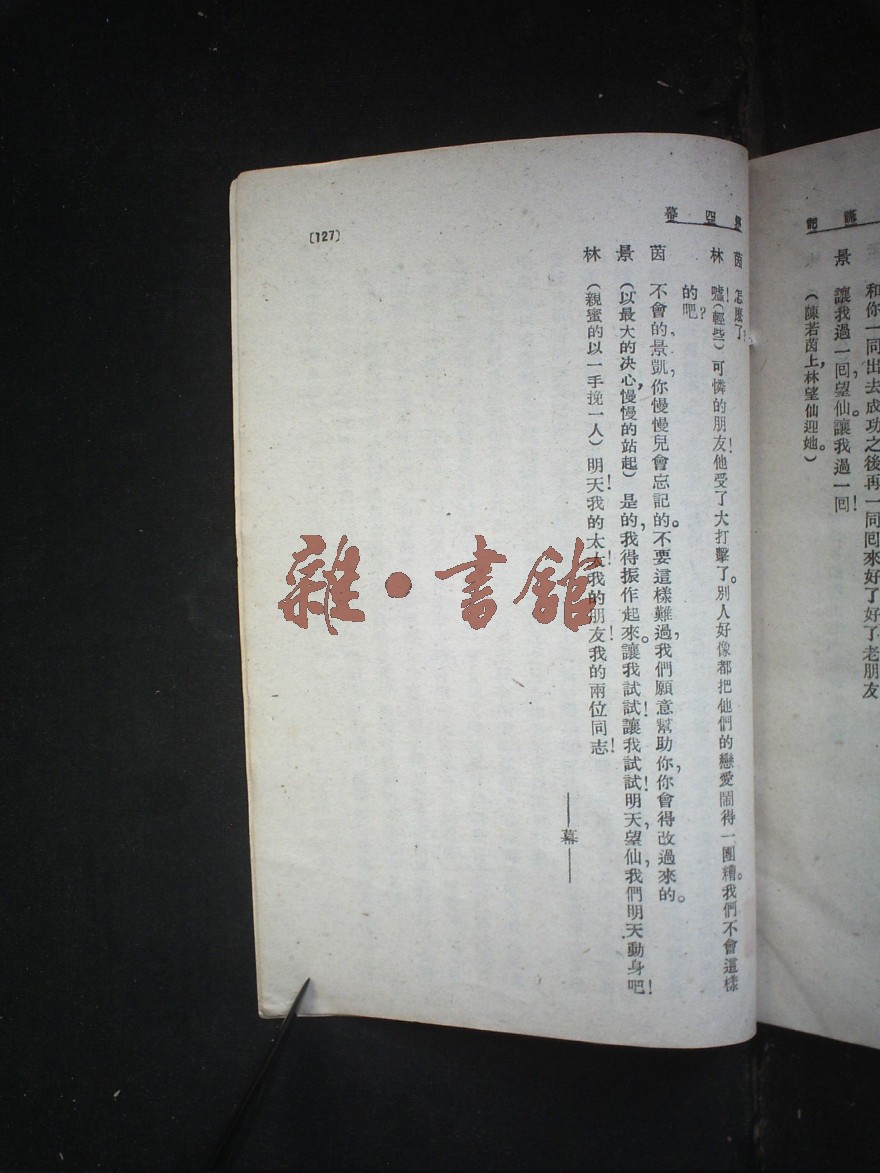 和你一同出去成功之後再一同回來好了好了老朋友
景　讓我過一回，望仙。讓我過一回！
（陳若茵上，林望仙迎她。）
幕
茵　怎麼了？
林　噓！（輕些）可憐的朋友！他受了大打擊了。別人好像都把他們的戀愛鬧得一團糟。我們不會這樣
的吧？
茵　不會的，景凱，你慢慢兒會忘記的。不要這樣難過，我們願意幫助你，你會得改過來的。
景　（以最大的決心，慢慢的站起）是的，我得振作起來。讓我試試！讓我試試！明天，望仙，我們明天動身吧！
林　（親蜜的以一手挽一人）明天！我的太太！我的朋友！我的兩位同志！
——幕——
〔127〕
雜·書館